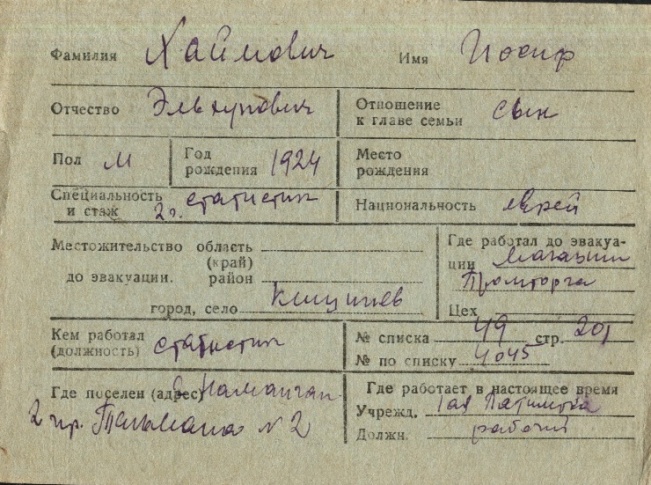 Фамилия Хаймович Имя Иосиф
Отчество Эльхунович Отношение к главе семьи сын
Пол М Год рождения 1924 Место рождения
Специальность и стаж 2 г. статистик Национальность еврей
Местожительство область
(край)
до эвакуации. район
город, село Кишинев
Где работал до эвакуа-
ции Магазин
Промторга
Цех
Кем работал
(должность) статистик
№ списка 49 стр. 201
№ по списку 4045
Где поселен (адрес) Наманган
2 пр. Тельмана № 2
Где работает в настоящее время
Учрежд. 1ая Пятилетка
Должн. рабочий